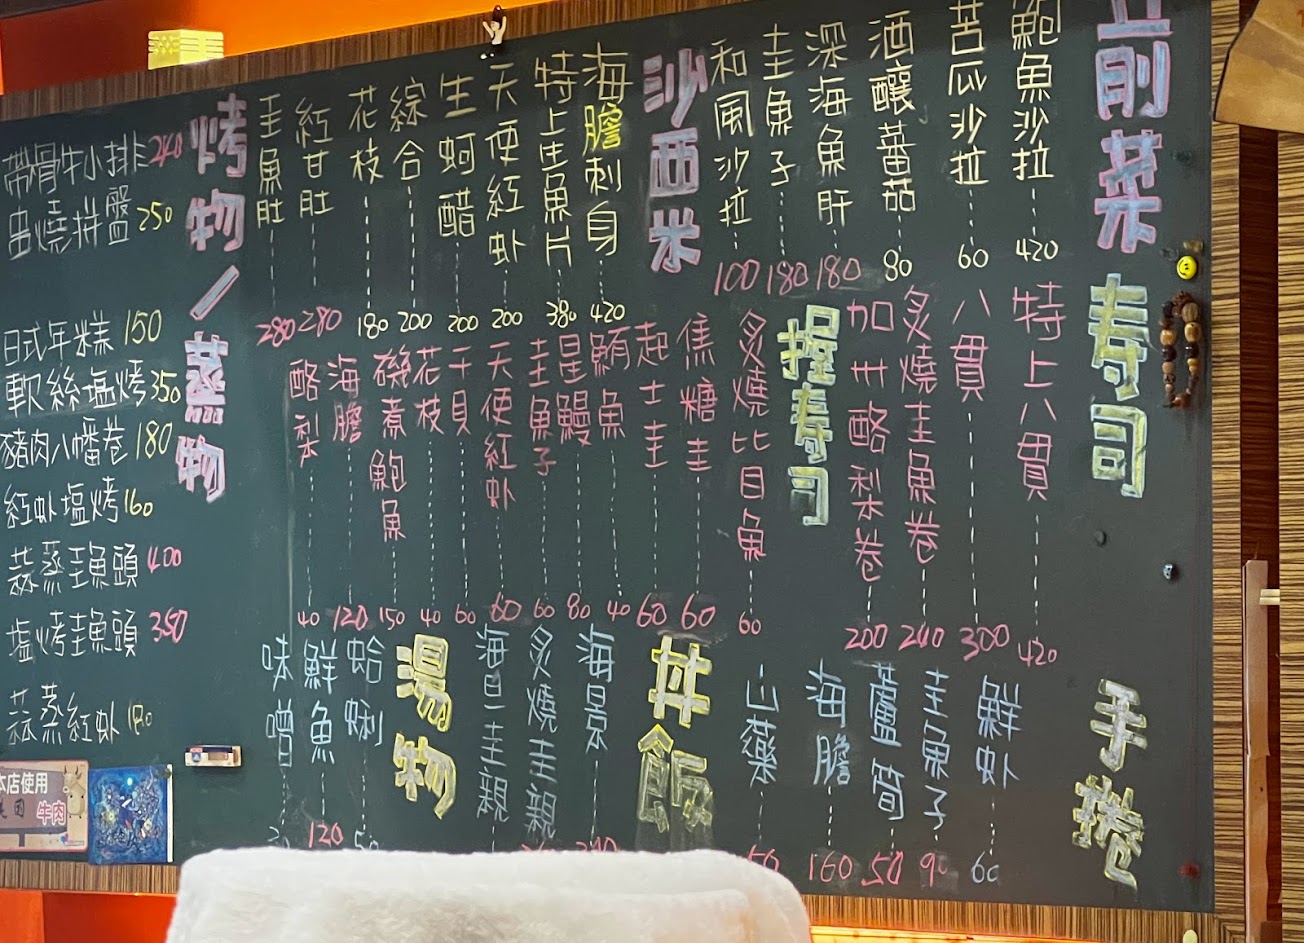 前菜
鮑魚沙拉 420
苦瓜沙拉 60
酒釀蕃茄 80
深海魚肝 180
圭魚子 180
和風沙拉 100
沙西米
海膽刺身 420
特上生魚片 380
天使紅虾 200
生蚵醋 200
綜合 200
花枝 180
紅甘肚 280
圭魚肚 280
寿司
特上八貫 420
八貫 300
炙燒圭魚卷 240
加州酪梨卷 200
握寿司
炙燒比目魚 60
焦糖圭 60
起士圭 60
鮪魚 40
星鰻 80
圭魚子 60
天使紅虾 60
干貝 60
花枝 40
磯煮鮑魚 150
海膽 120
酪梨 40
手捲
鮮虾 60
圭魚子 90
蘆筍 50
海膽 160
山藥 50
丼飯
海景
炙燒圭親
海旦圭親
湯物
蛤蜊
鮮魚 120
味噌
烤物/蒸物
帶骨牛小排 240
串燒拼盤 250
日式年糕 150
軟絲塩烤 350
豬肉八幡卷 180
紅虾塩烤 160
蒜蒸圭魚頭 400
塩烤圭魚頭 350
蒜蒸紅虾 180
本店使用
牛肉